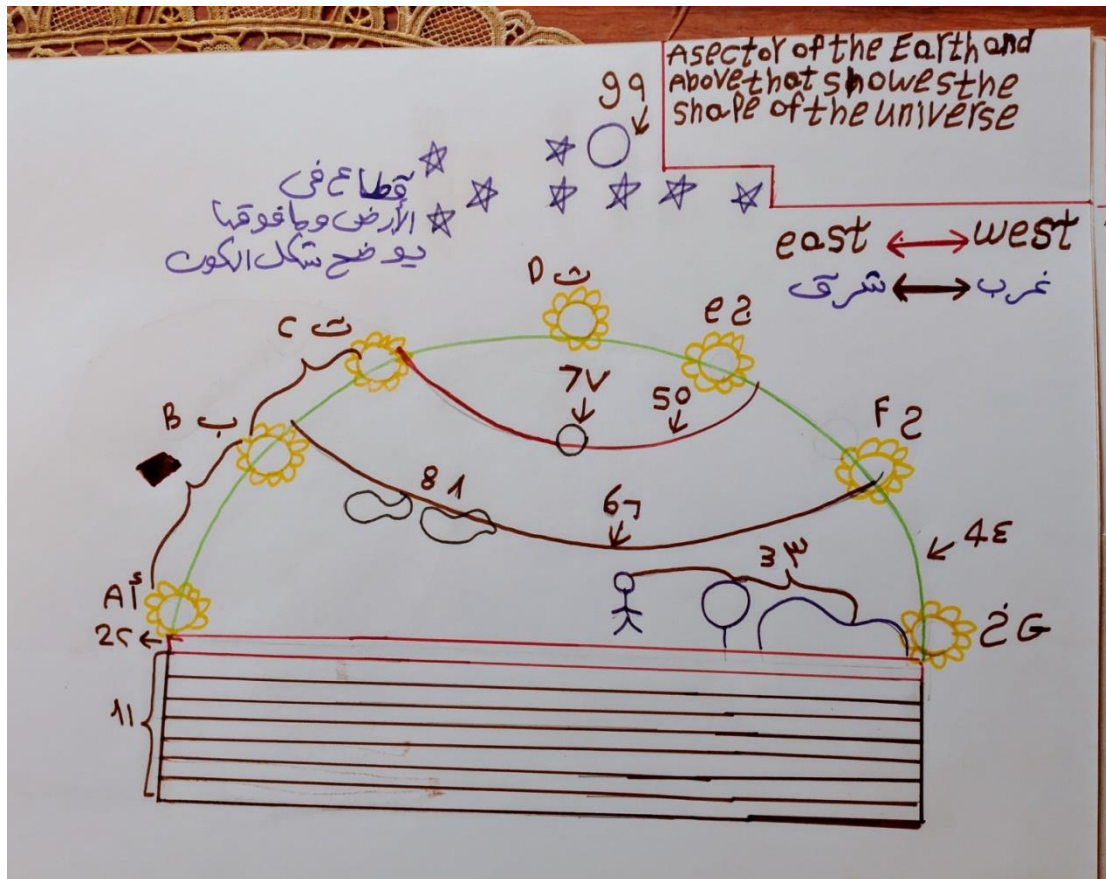 A sector of the Earth and
Above that showes the
shape of the universe
9 ٩
قطاع في
الأرض وما فوقها
يوضح شكل الكون
east ↔ west
شرق ↔ غرب
D ث
C ت
e ج
7 ٧
5 ٥
B ب
F ح
8 ٨
6 ٦
4 ٤
3 ٣
A أ
خ G
2 ٢
1 ١